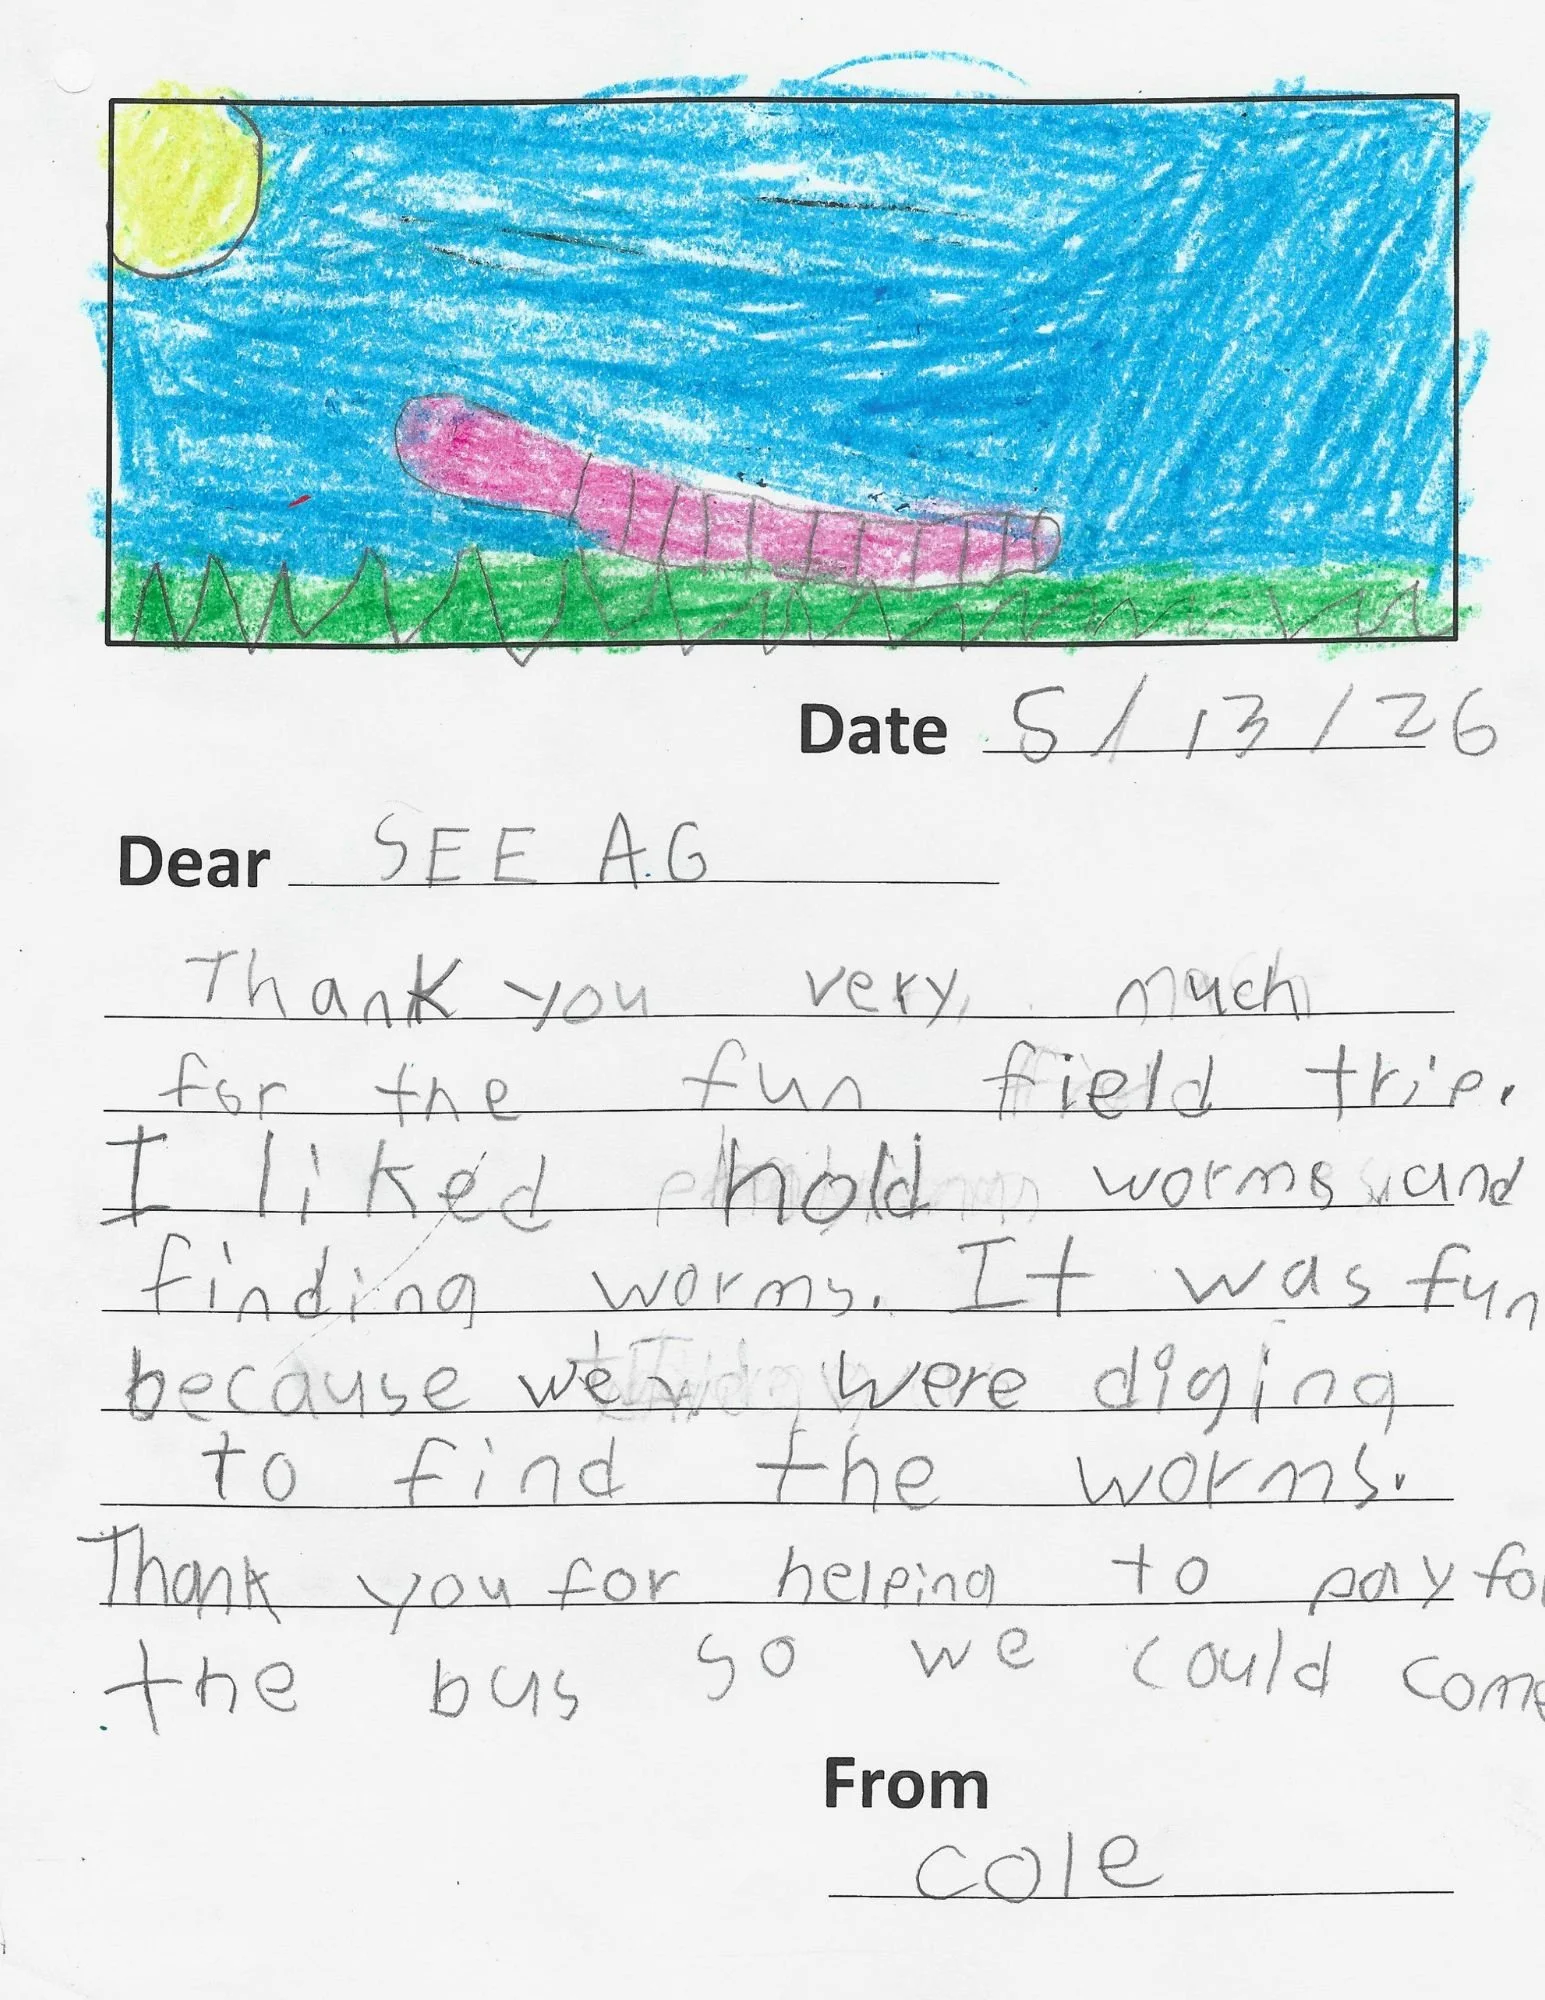 Date 5/13/26
Dear SEE A.G
Thank you very much
for the fun field trip.
I liked hold worms and
finding worms. It was fun
because we were diging
to find the worms.
Thank you for helping to pay for
the bus so we could come
From
cole